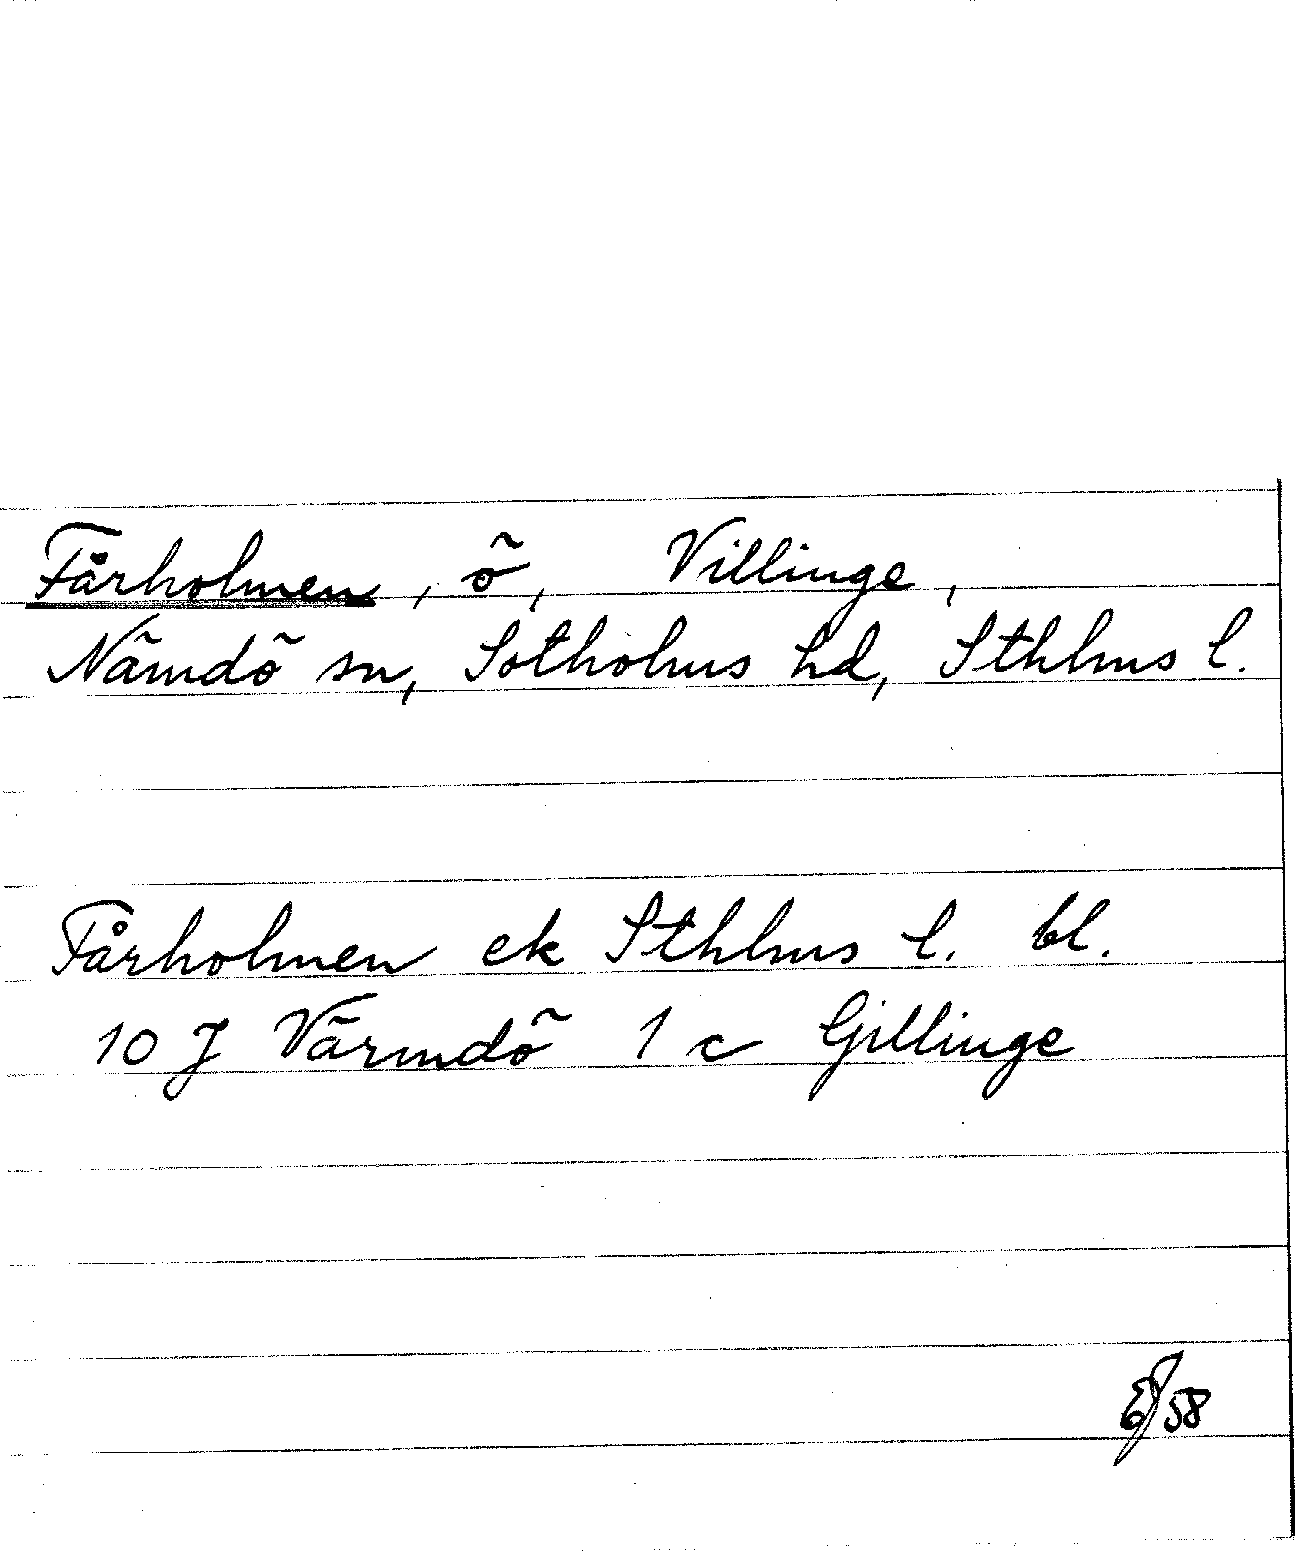 Fårholmen, ö, Villinge,
Nämdö sn, Sotholms hd, Sthlms l.
Fårholmen ek Sthlms l. bl.
10 J Värmdö 1 c Gillinge
58